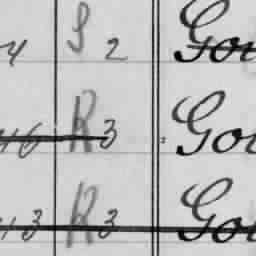 4 S 2 Gou
46 R 3 : Gou
13 R 3 Gou